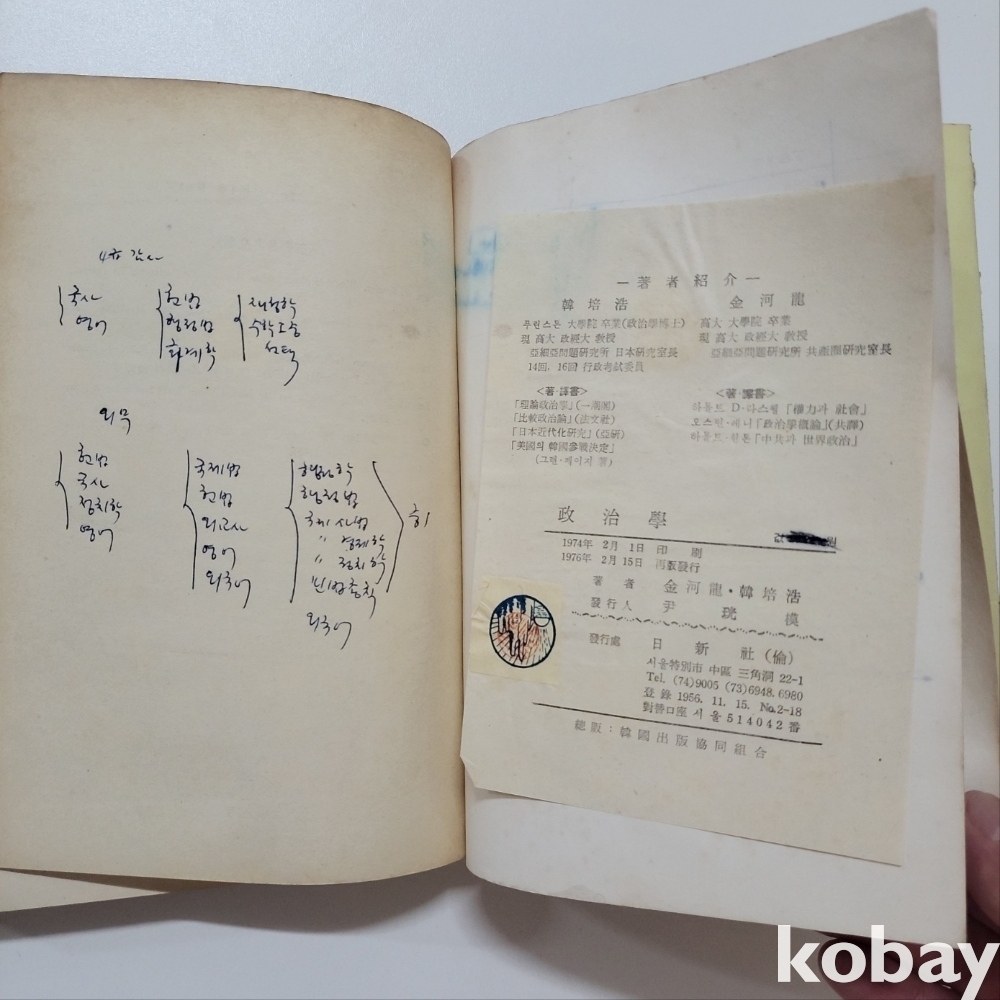 4급 감사
국사
영어
헌법
행정법
회계학
재정학
수학 도중
선택
외무
헌법
국사
정치학
영어
국제법
헌법
외교사
영어
외국어
행정학
행정법
국제사법
〃 경제학
〃 정치학
민법총칙
외국어
—著者紹介—
韓培浩
프린스톤 大學院 卒業(政治學博士)
現 高大 政經大 敎授
亞細亞問題研究所 日本研究室長
14回, 16回 行政考試委員
<著·譯書>
「理論政治學」(一潮閣)
「比較政治論」(法文社)
「日本近代化研究」(亞研)
「美國의 韓國參戰決定」
(그렌·페이지 著)
金河龍
高大 大學院 卒業
現 高大 政經大 敎授
亞細亞問題研究所 共產圈研究室長
<著·譯書>
하롤드 D·라스웰「權力과 社會」
오스틴·래니「政治學槪論」(共譯)
하롤드·힌톤「中共과 世界政治」
政治學
1974年 2月 1日 印刷
1976年 2月 15日 再版發行
著者 金河龍·韓培浩
發行人 尹珖模
發行處 日新社(倫)
서울特別市 中區 三角洞 22-1
Tel. (74)9005 (73)6948. 6980
登錄 1956. 11. 15. No.2-18
對替口座 서울 514042番
總販:韓國出版協同組合
kobay